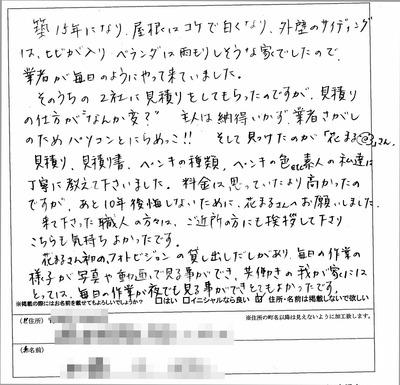 築15年になり、屋根はコケで白くなり、外壁のサイディング
は、ヒビが入り ベランダは雨もりしそうな家でしたので、
業者が毎日のようにやって来ていました。
そのうちの2社に見積りをしてもらったのですが、見積り
の仕方が"なんか変?" 主人は納得いかず、業者さがし
のためパソコンとにらめっこ!! そして見つけたのが「花まる@」さん。
見積り、見積り書、ペンキの種類、ペンキの色etc素人の私達に
丁寧に教えて下さいました。料金は思っていたより高かったの
ですが、あと10年後悔しないために、花まるさんへお願いしました。
来て下さった職人の方々は、ご近所の方にも挨拶して下さり
こちらも気持ちよかったです。
花まるさん初のフォトビジョンの貸し出しだしがあり、毎日の作業の
様子が写真や動画で見る事ができ、共働きの我が家には
とっては、毎日の作業が夜でも見る事ができとてもよかったです。
※掲載の際にはお名前を載せてもよろしいでしょうか? □はい □イニシャルなら良い ☑ 住所・名前は掲載しないで欲しい
(ご住所) ※住所の町名以降は見えないように加工致します。
(お名前)